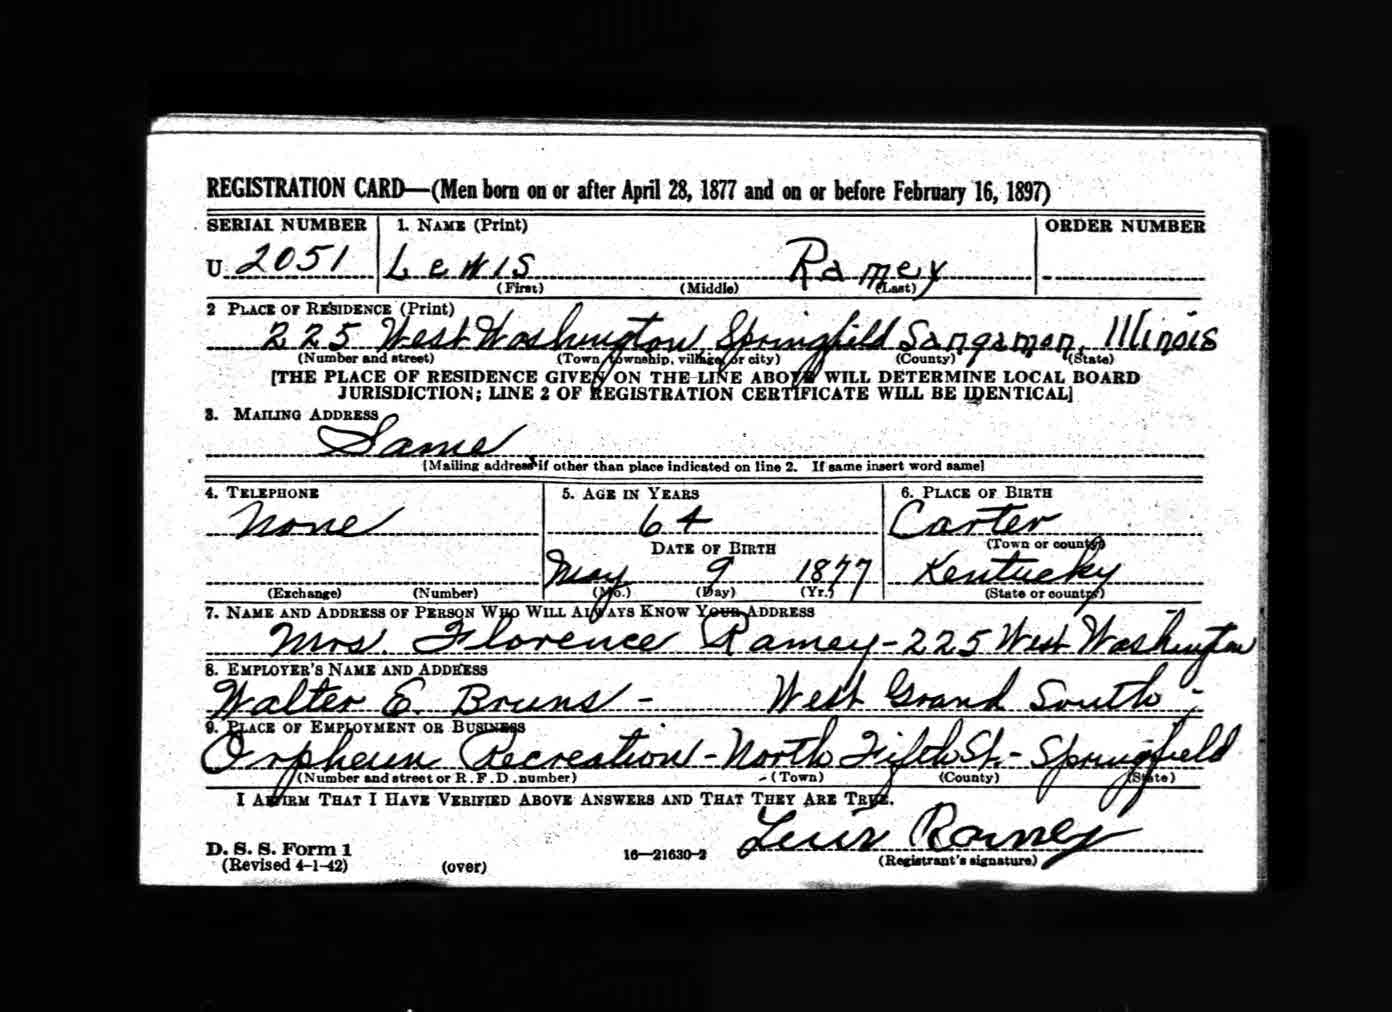 REGISTRATION CARD—(Men born on or after April 28, 1877 and on or before February 16, 1897)
SERIAL NUMBER 1. NAME (Print) ORDER NUMBER
U 2051 Lewis Ramey
(First) (Middle) (Last)
2 PLACE OF RESIDENCE (Print)
225 West Washington Springfield Sangamon, Illinois
(Number and street) (Town, township, village, or city) (County) (State)
[THE PLACE OF RESIDENCE GIVEN ON THE LINE ABOVE WILL DETERMINE LOCAL BOARD
JURISDICTION; LINE 2 OF REGISTRATION CERTIFICATE WILL BE IDENTICAL]
3. MAILING ADDRESS
Same
[Mailing address if other than place indicated on line 2. If same insert word same]
4. TELEPHONE 5. AGE IN YEARS 6. PLACE OF BIRTH
None 64 Carter
DATE OF BIRTH (Town or county)
May 9 1877 Kentucky
(Exchange) (Number) (Mo.) (Day) (Yr.) (State or country)
7. NAME AND ADDRESS OF PERSON WHO WILL ALWAYS KNOW YOUR ADDRESS
Mrs. Florence Ramey - 225 West Washington
8. EMPLOYER'S NAME AND ADDRESS
Walter E. Bruns - West Grand South -
9. PLACE OF EMPLOYMENT OR BUSINESS
Orpheun Recreation - North Fifth St. - Springfield
(Number and street or R.F.D. number) (Town) (County) (State)
I AFFIRM THAT I HAVE VERIFIED ABOVE ANSWERS AND THAT THEY ARE TRUE.
Lewis Ramey
D. S. S. Form 1
(Revised 4-1-42) (over) 16—21630-2 (Registrant's signature)